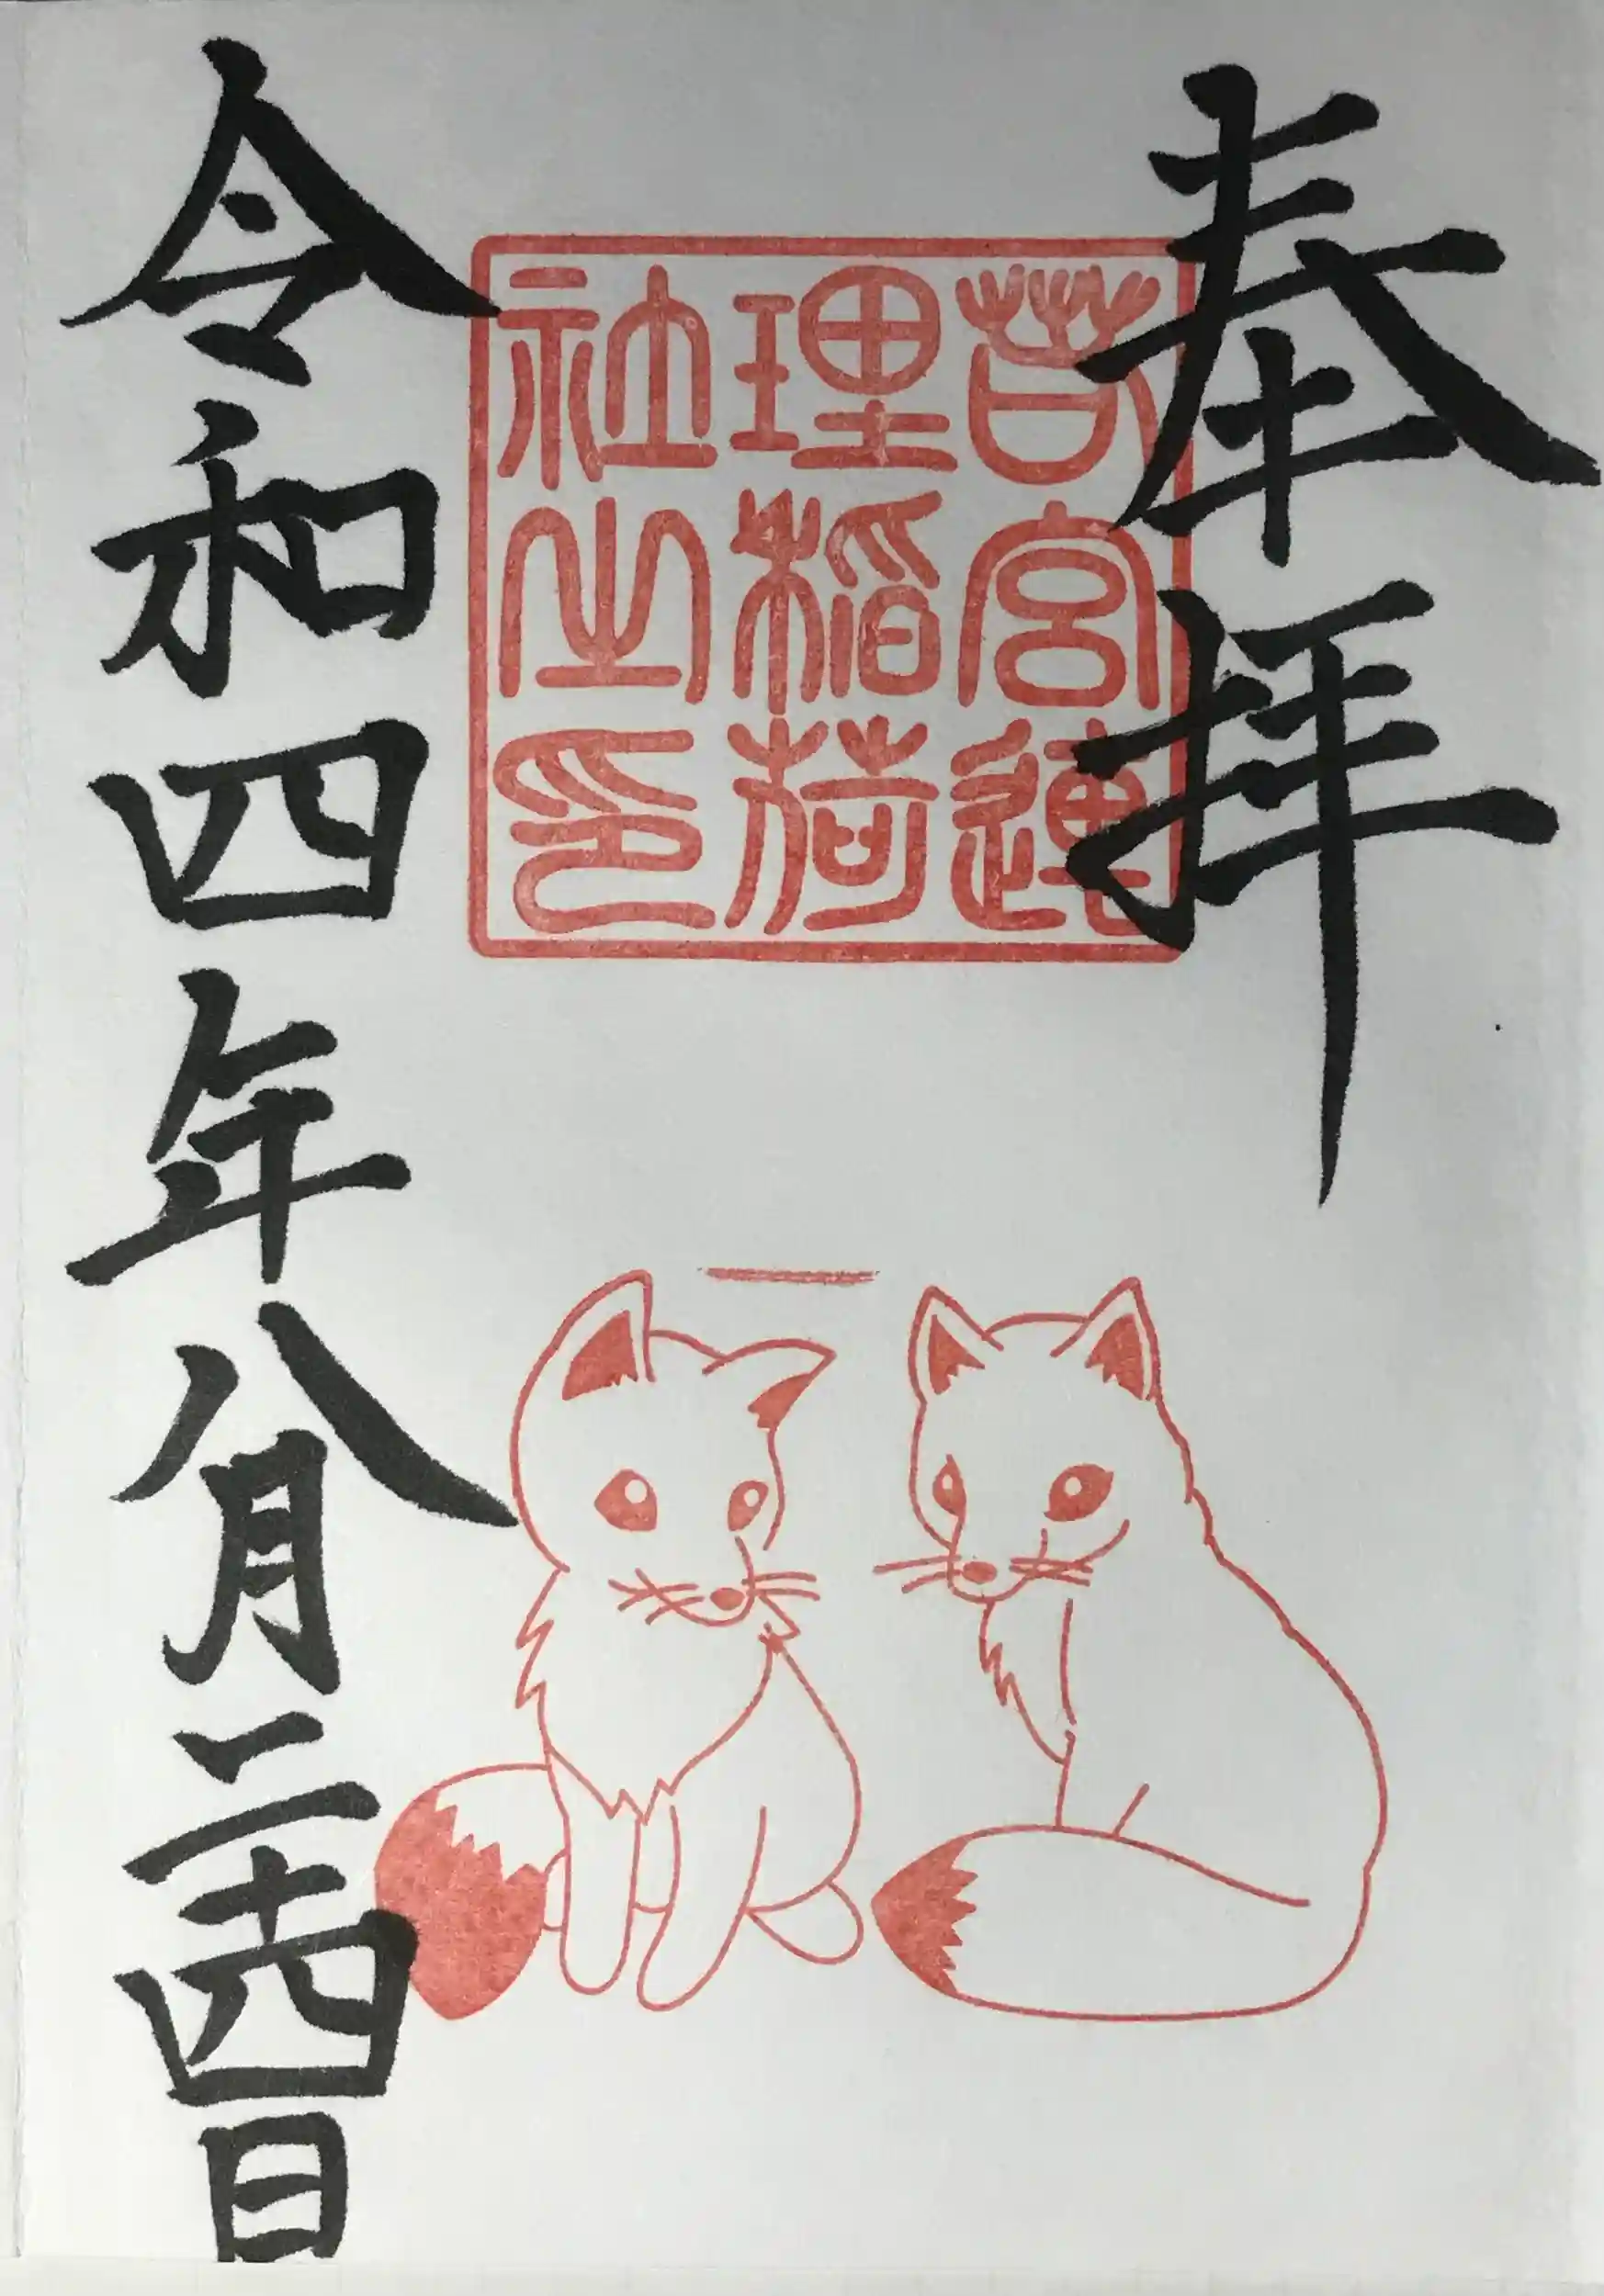 奉拝
若宮連
理稲荷
社之印
令和四年八月二十四日